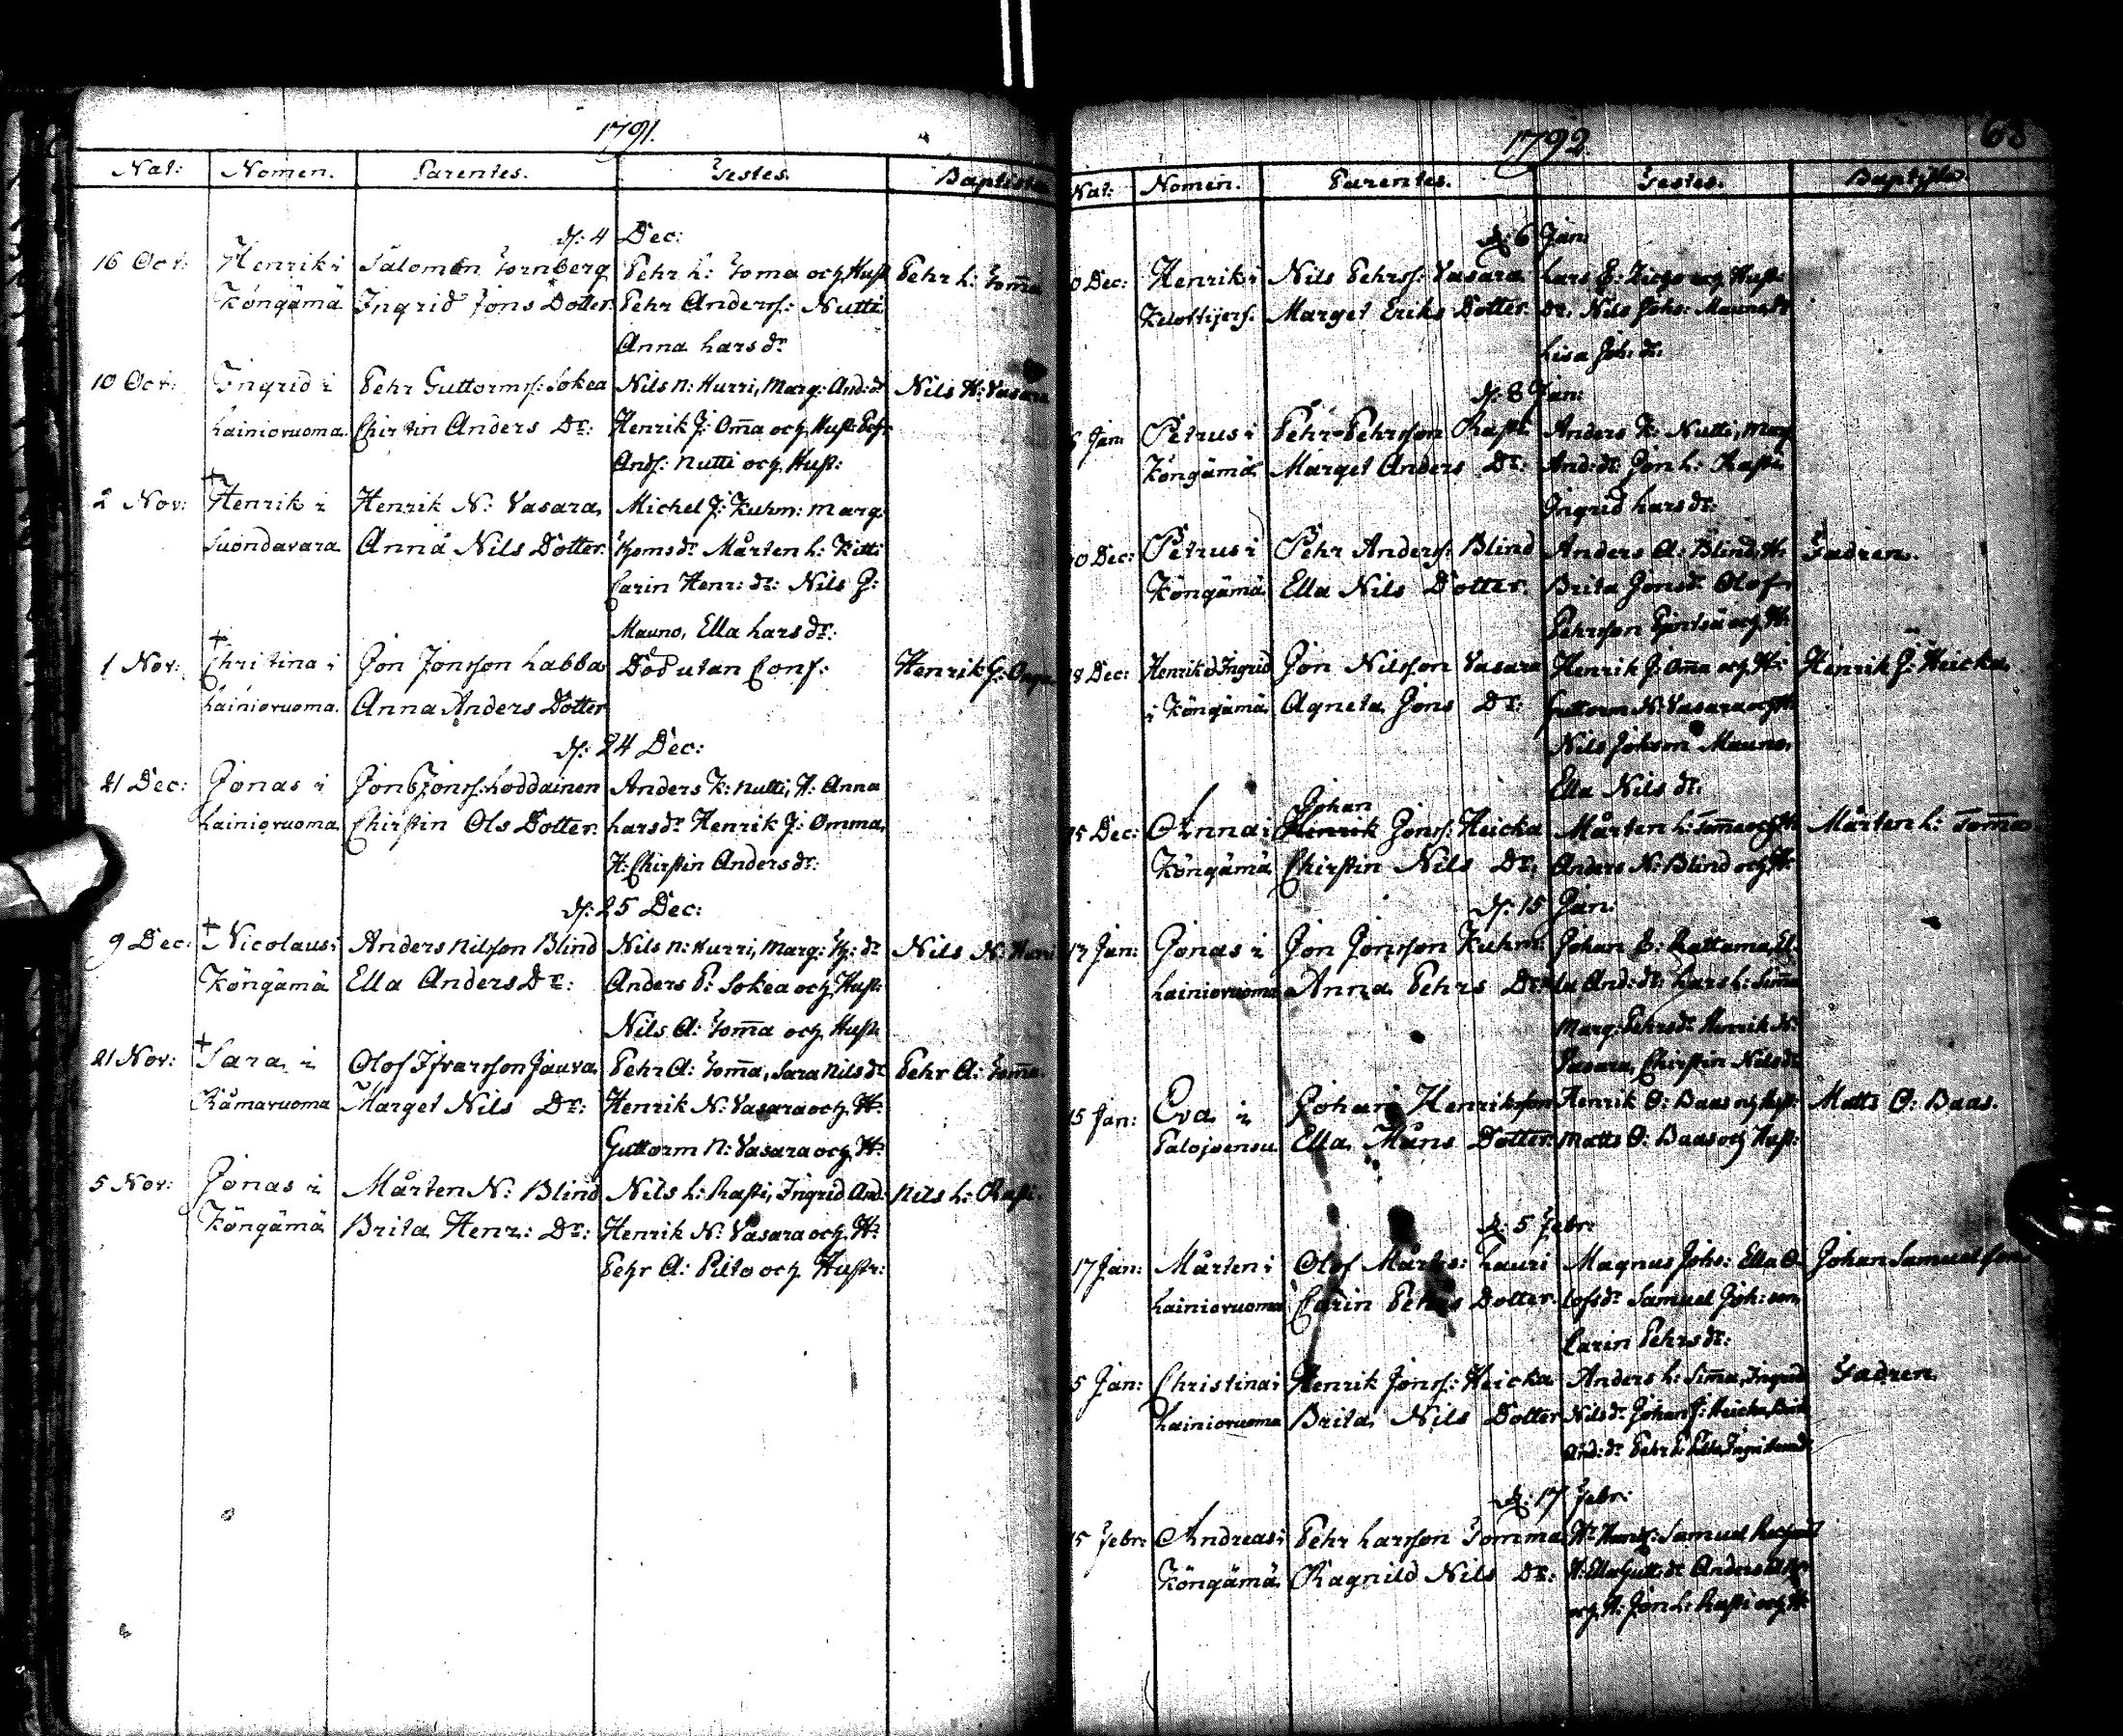 1791.
Nat: Nomen. Parentes. Testes. Baptista
d: 4 Dec:
16 Oct: Henrik i Salomon Tornberg Pehr L: Toma och Hust. Pehr L: Tom̄a
Köngämä Ingrid Jons Dotter. Pehr Anderss: Nutti
Anna Lars dr
10 Oct: Ingrid i Pehr Guttormss: Sokea Nils N: Hurri, Marg: And: dr Nils H: Vasara
Lainiovuoma. Chirstin Anders Dr: Henrik J: Om̄a och Hust:
Ands: Nutti och Hust:
2 Nov: + Henrik i Henrik N: Vasara, Michel J: Kuhm: Marg:
Suondavara Anna Nils Dotter. Mårten L: Kitti
Carin Henr: dr: Nils J:
Mauno, Ella Lars dr:
1 Nov: + Christina i Jon Jonsson Labba Död utan Conf: Henrik J:
Lainiovuoma. Anna Anders Dotter
d: 24 Dec:
21 Dec: Jonas i Jon Jonss: Loddainen Anders K: Nutti, H: Anna
Lainiovuoma Chirstin Ols Dotter. Lars dr Henrik J: Omma,
H: Chirstin Anders dr:
d: 25 Dec:
9 Dec: + Nicolaus i Anders Nilsson Blind Nils N: Hurri, Marg: dr Nils N: Hurri
Köngämä Ella Anders Dr: Anders P: Sokea och Hust:
Nils A: Tom̄a och Hust:
21 Nov: + Sara i Olof Ifvarsson Jauva Pehr A: Tom̄a, Sara Nils dr Pehr A: Tom̄a
Råmavuoma Marget Nils Dr: Henrik N: Vasara och H:
Guttorm N: Vasara och H:
5 Nov: Jonas i Mårten N: Blind Nils L: Rasti, Ingrid And: Nils L: Rasti.
Köngämä Brita Henr: Dr: Henrik N: Vasara och H:
Pehr A: Pilto och Hustr:
1792 68
Nat: Nomen. Parentes. Testes. Baptista
d: 6 Jan:
0 Dec: Henrik i Nils Pehrss: Vasara Lars och Hust:
Marget Eriks Dotter. Nils Johs: Mauno
Lisa Joh: dr:
d: 8 Jan:
6 Jan: Petrus i Pehr Pehrsson Rasti Anders K: Nutti, Marg
Köngämä Marget Anders Dr: And: dr: Jon L: Rasti,
Ingrid Lars dr:
0 Dec: Petrus i Pehr Anderss: Blind Anders A: Blind, H: Fadren.
Köngämä Ella Nils Dotter. Brita Jons dr Olof
Pehrsson och H:
8 Dec: Henrik o Ingrid Jon Nilsson Vasara Henrik J: Om̄a och H: Henrik J: Heicka
i Köngämä Agneta Jons Dr: Guttorm N: Vasara och H:
Nils Johsson Mauno,
Ella Nils dr.
15 Dec: Anna i Johan Henrik Jonss: Heicka Mårten L: Tom̄a och H: Mårten L: Tom̄a
Köngämä Chirstin Nils Dr, Anders N: Blind och H:
d: 15 Jan:
13 Jan: Jonas i Jon Jonsson Kuhm: Johan Rattama, El-
Lainiovuoma Anna Pehrs Dr la And: dr: Lars L: Sim̄a
Marg: Pehrs dr Henrik N:
Vasara, Chirstin Nils dr
15 Jan: Eva i Johan Henriksson Henrik O: Baas och Hust: Matts O: Baas.
Palojoensu Ella Måns Dotter: Matts O: Baas och Hust:
d: 5 Febr:
17 Jan: Mårten i Olof Mårts: Lauri Magnus Johs: Ella O- Johan Samuelsson
Lainiovuoma Carin Pehrs Dotter. lofs dr Samuel Joh: son,
Carin Pehrs dr:
5 Jan: Christina i Henrik Jonss: Heicka Anders L: Sim̄a, Ingrid Fadren.
Lainiovuoma Brita Nils Dotter Nils dr Johan J: Heicka, Brit
And: dr Pehr
d: 17 Febr:
15 Febr: Andreas i Pehr Larsson Tomma Samuel
Köngämä Ragnild Nils Dr: H: Ella Gutt: dr Anders
och H: Jon L: Rasti och H: